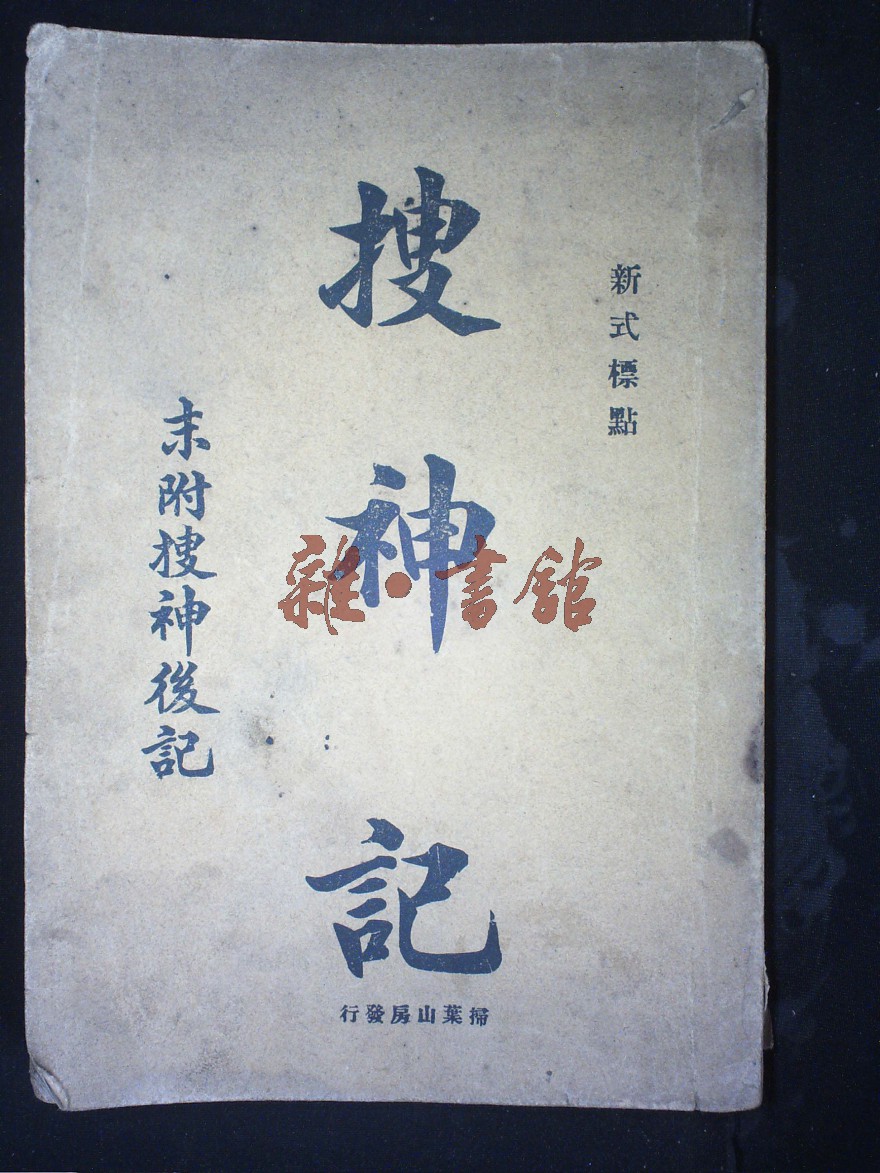 新式標點
搜神記
末附搜神後記
掃葉山房發行
雜·書館